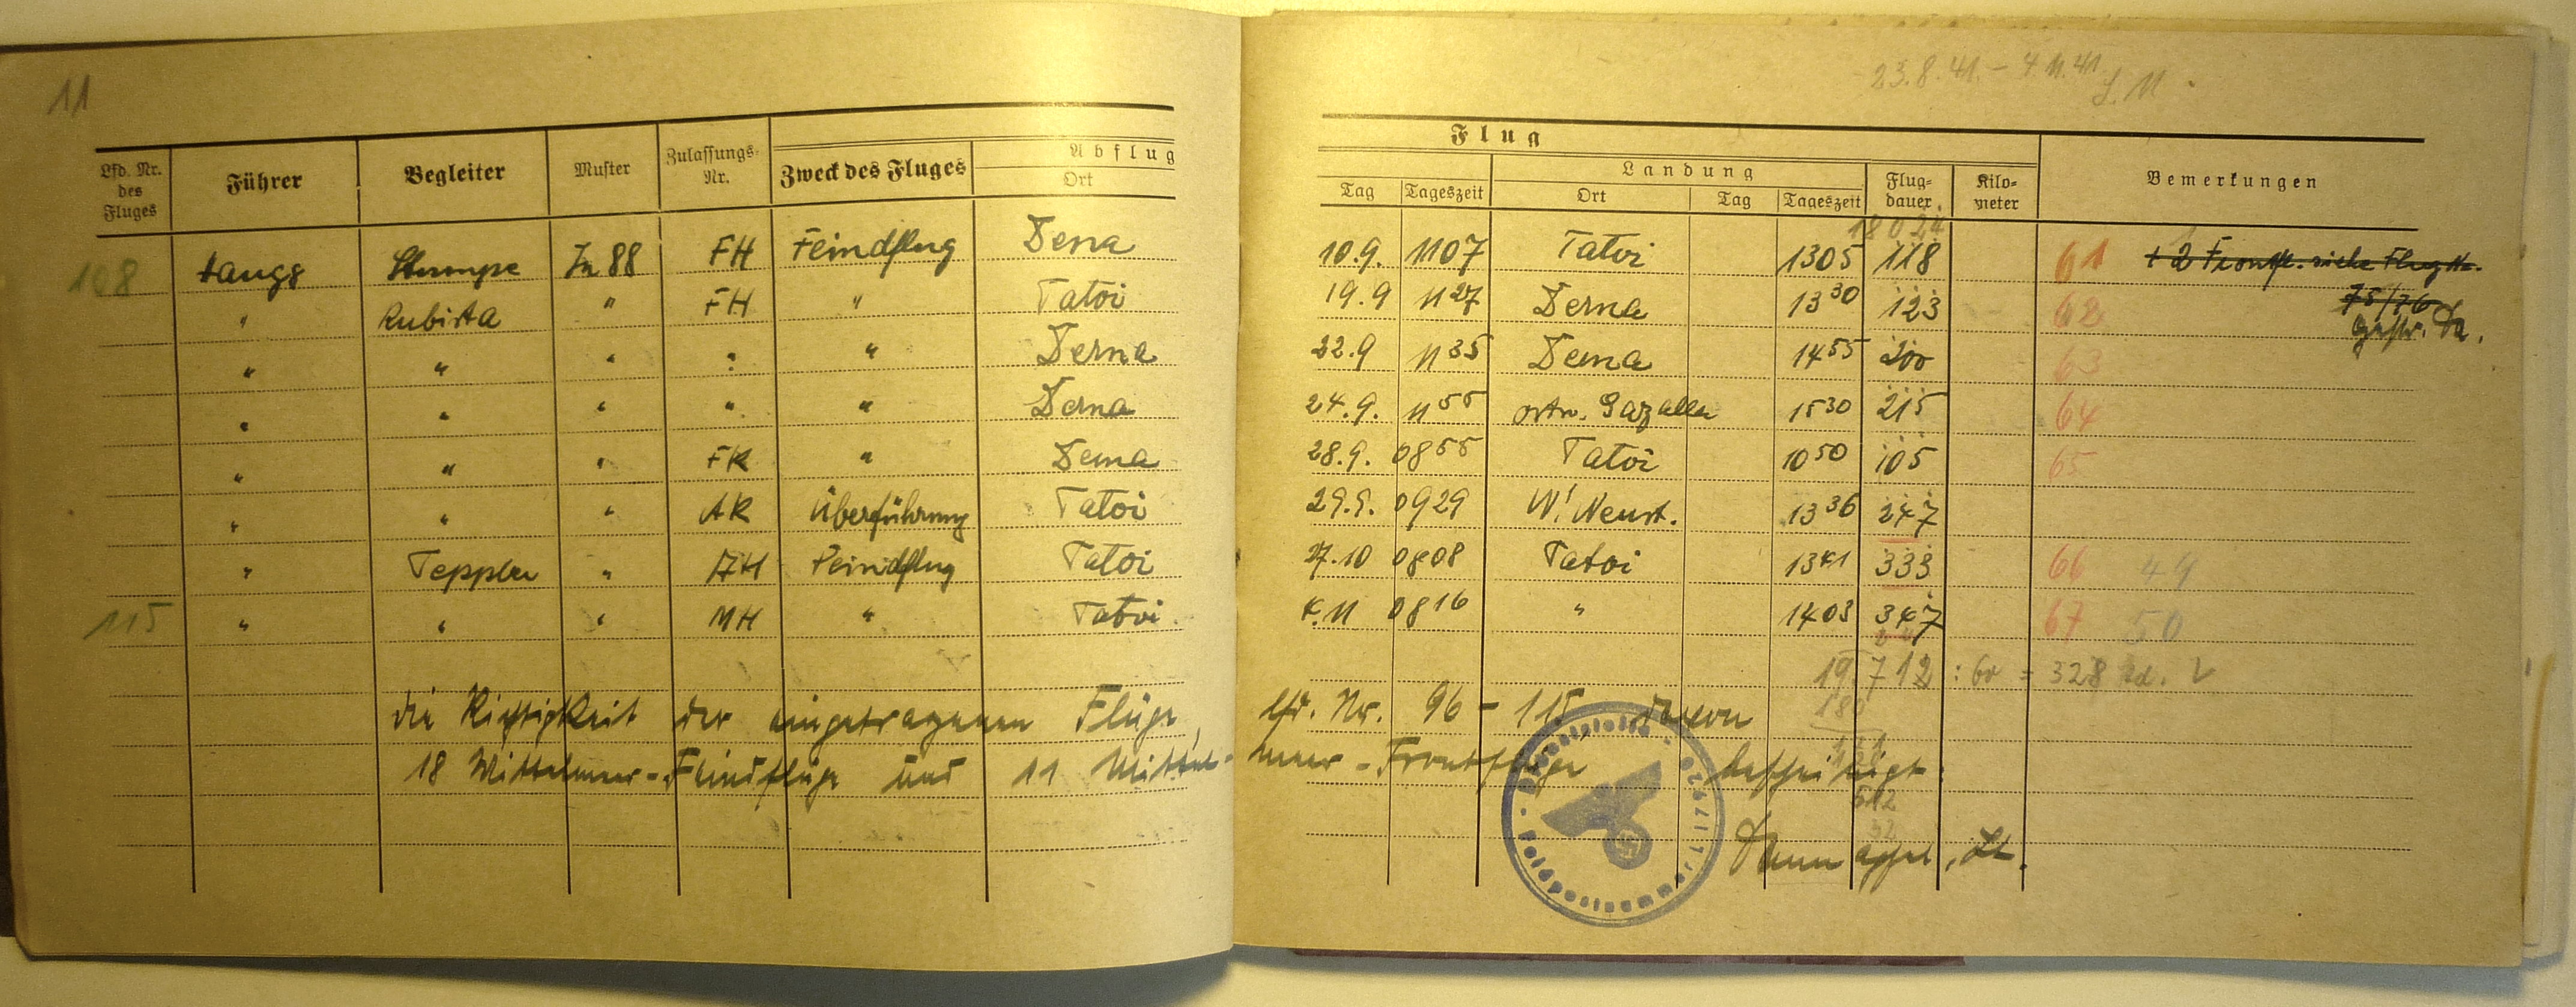 11
23.8.41. - 4.11.41
Flug
Abflug
Landung
Lfd. Nr. des Fluges Führer Begleiter Muster Zulassungs-Nr. Zweck des Fluges Ort Tag Tageszeit Ort Tag Tageszeit Flugdauer Kilometer Bemerkungen
18024
108 Langs Stumpe Ju 88 FH Feindflug Derna 10.9. 1107 Tatoi 1305 118 61 + 2 Frontfl. siehe Flug Nr.
" Kubista " FH " Tatoi 19.9 1127 Derna 1330 123 62 75/76
gestr. Da.
" " " " " Derna 22.9 1135 Derna 1455 200 63
" " " " " Derna 24.9. 1155 Gazalla 1530 215 64
" " " FK " Derna 28.9. 0855 Tatoi 1050 105 65
" " " AK Überführung Tatoi 29.9. 0929 W. Neust. 1336 247
" Teppler " AH Feindflug Tatoi 27.10 0808 Tatoi 1341 333 66 49
115 " " " MH " Tatoi 4.11 0816 " 1403 347 67 50
19712 : 60 = 328
die Richtigkeit der eingetragenen Flüge, lfd. Nr. 96 - 115 davon
18 Mittelmeer-Feindflüge und 11 Mittelmeer-Frontflüge bescheinigt:
512
Dienststelle Feldpostnummer L 17420
, Lt.